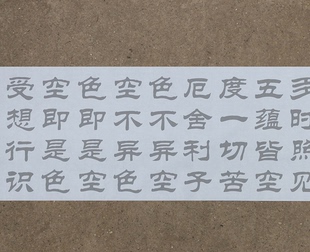 多时照见
五蕴皆空
度一切苦
厄舍利子
色不异空
空不异色
色即是空
空即是色
受想行识